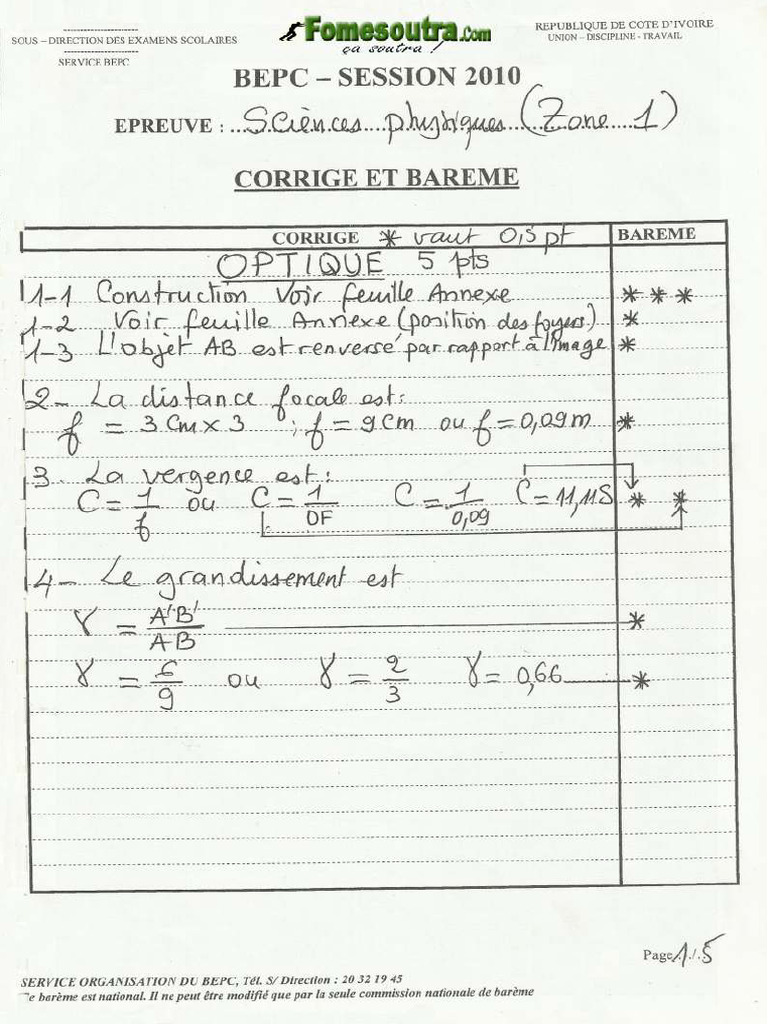 SOUS – DIRECTION DES EXAMENS SCOLAIRES
SERVICE BEPC
Fomesoutra.Com
ça soutra !
REPUBLIQUE DE COTE D'IVOIRE
UNION – DISCIPLINE - TRAVAIL
BEPC – SESSION 2010
EPREUVE : Sciences physiques (Zone 1)
CORRIGE ET BAREME
CORRIGE * vaut 0,5 pt BAREME
OPTIQUE 5 pts
1-1 Construction Voir feuille Annexe * * *
1-2 Voir feuille Annexe (position des foyers) *
1-3 L'objet AB est renversé par rapport à l'image *
2- La distance focale est:
f = 3 cm x 3 ; f = 9 cm ou f = 0,09 m *
3. La vergence est:
C = 1/f ou C = 1/OF C = 1/0,09 C = 11,11 δ * *
4- Le grandissement est
γ = A'B'/AB *
γ = 6/9 ou γ = 2/3 γ = 0,66 *
Page 1/5
SERVICE ORGANISATION DU BEPC, Tél. S/ Direction : 20 32 19 45
e barème est national. Il ne peut être modifié que par la seule commission nationale de barème